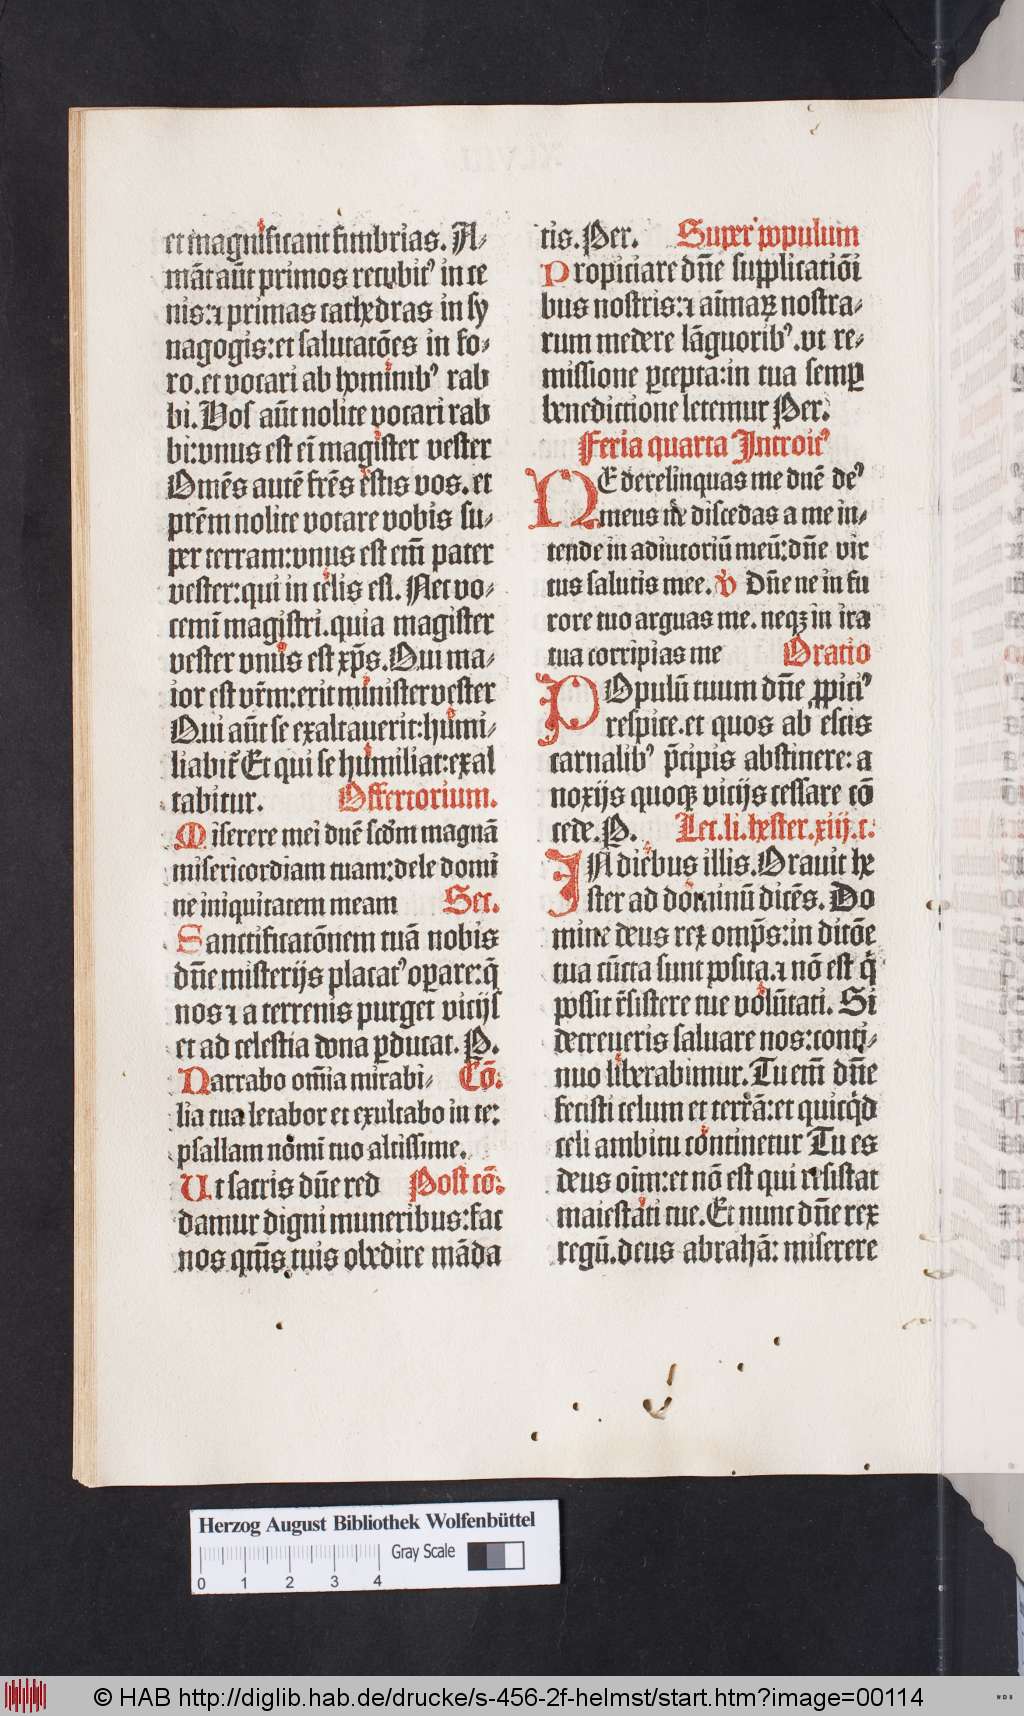 et magnificant fimbrias. A⸗
mãt aũt primos recubit᾽ in ce
nis:⁊ primas cathedras in sy
nagogis:et salutatões in fo⸗
ro.et vocari ab homĩnib᾽ rab
bi.Vos aũt nolite vocari rab
bi:vnus est eĩ magister vester
Omẽs autẽ frẽs estis vos.et
prẽm nolite votare vobis su⸗
per terram:vnus est eñi pater
vester:qui in celis est. Nec vo⸗
cemĩ magistri.quia magister
vester vnus est xp̃s.Qui ma⸗
ior est vr̃m:erit minister vester
Qui aũt se exaltauerit:humi⸗
liabit̃ Et qui se humiliat:exal
tabitur. Offertorium.
Miserere mei dñe scd̃m magnã
misericordiam tuam:dele domi
ne iniquitatem meam Sec.
Sanctificatõnem tuã nobis
dñe misterijs placat᾽ oꝑare:q̃
nos ⁊ a terrenis purget vicijs
et ad celestia dona ꝑducat. P.
Narrabo om̃ia mirabi⸗ Cõ.
lia tua letabor et exultabo in te:
psallam nomĩ tuo altissime.
Ut sacris dñe red Post cõ.
damur digni muneribus:fac
nos qm̃s tuis obedire mãda
tis. Per. Super populum
Propiciare dñe supplicatiõi
bus nostris:⁊ aĩmaꝝ nostra⸗
rum medere lãguorib᾽.vt re⸗
missione ꝑcepta:in tua semꝑ
benedictione letemur Per.
Feria quarta Introit᾽
NE derelinquas me dñe de᾽
meus ne discedas a me in⸗
tende in adiutoriũ meũ:dñe vir
tus salutis mee. v̾ Dñe ne in fu
rore tuo arguas me. neqꝫ in ira
tua corripias me Oratio
POpulũ tuum dñe ꝓpici᾽
respice.et quos ab escis
carnalib᾽ p̃cipis abstinere: a
noxijs quoqꝫ vicijs cessare cõ
cede. P. Lec.li.hester.xiij.c.
IN diebus illis.Orauit he
ster ad dominũ dicẽs. Do
mine deus rex omp̃s:in dicõe
tua cũcta sunt posita.⁊ nõ est q̃
possit r̃sistere tue volũtati. Si
decreueris saluare nos:conti⸗
nuo liberabimur. Tu em̃ dñe
fecisti celum et terrã:et quicq̃d
celi ambitu continetur Tu es
deus oĩm:et nõ est qui resistat
maiestati tue. Et nunc dñe rex
regũ.deus abrahã: miserere
Herzog August Bibliothek Wolfenbüttel
Gray Scale
0 1 2 3 4
© HAB http://diglib.hab.de/drucke/s-456-2f-helmst/start.htm?image=00114